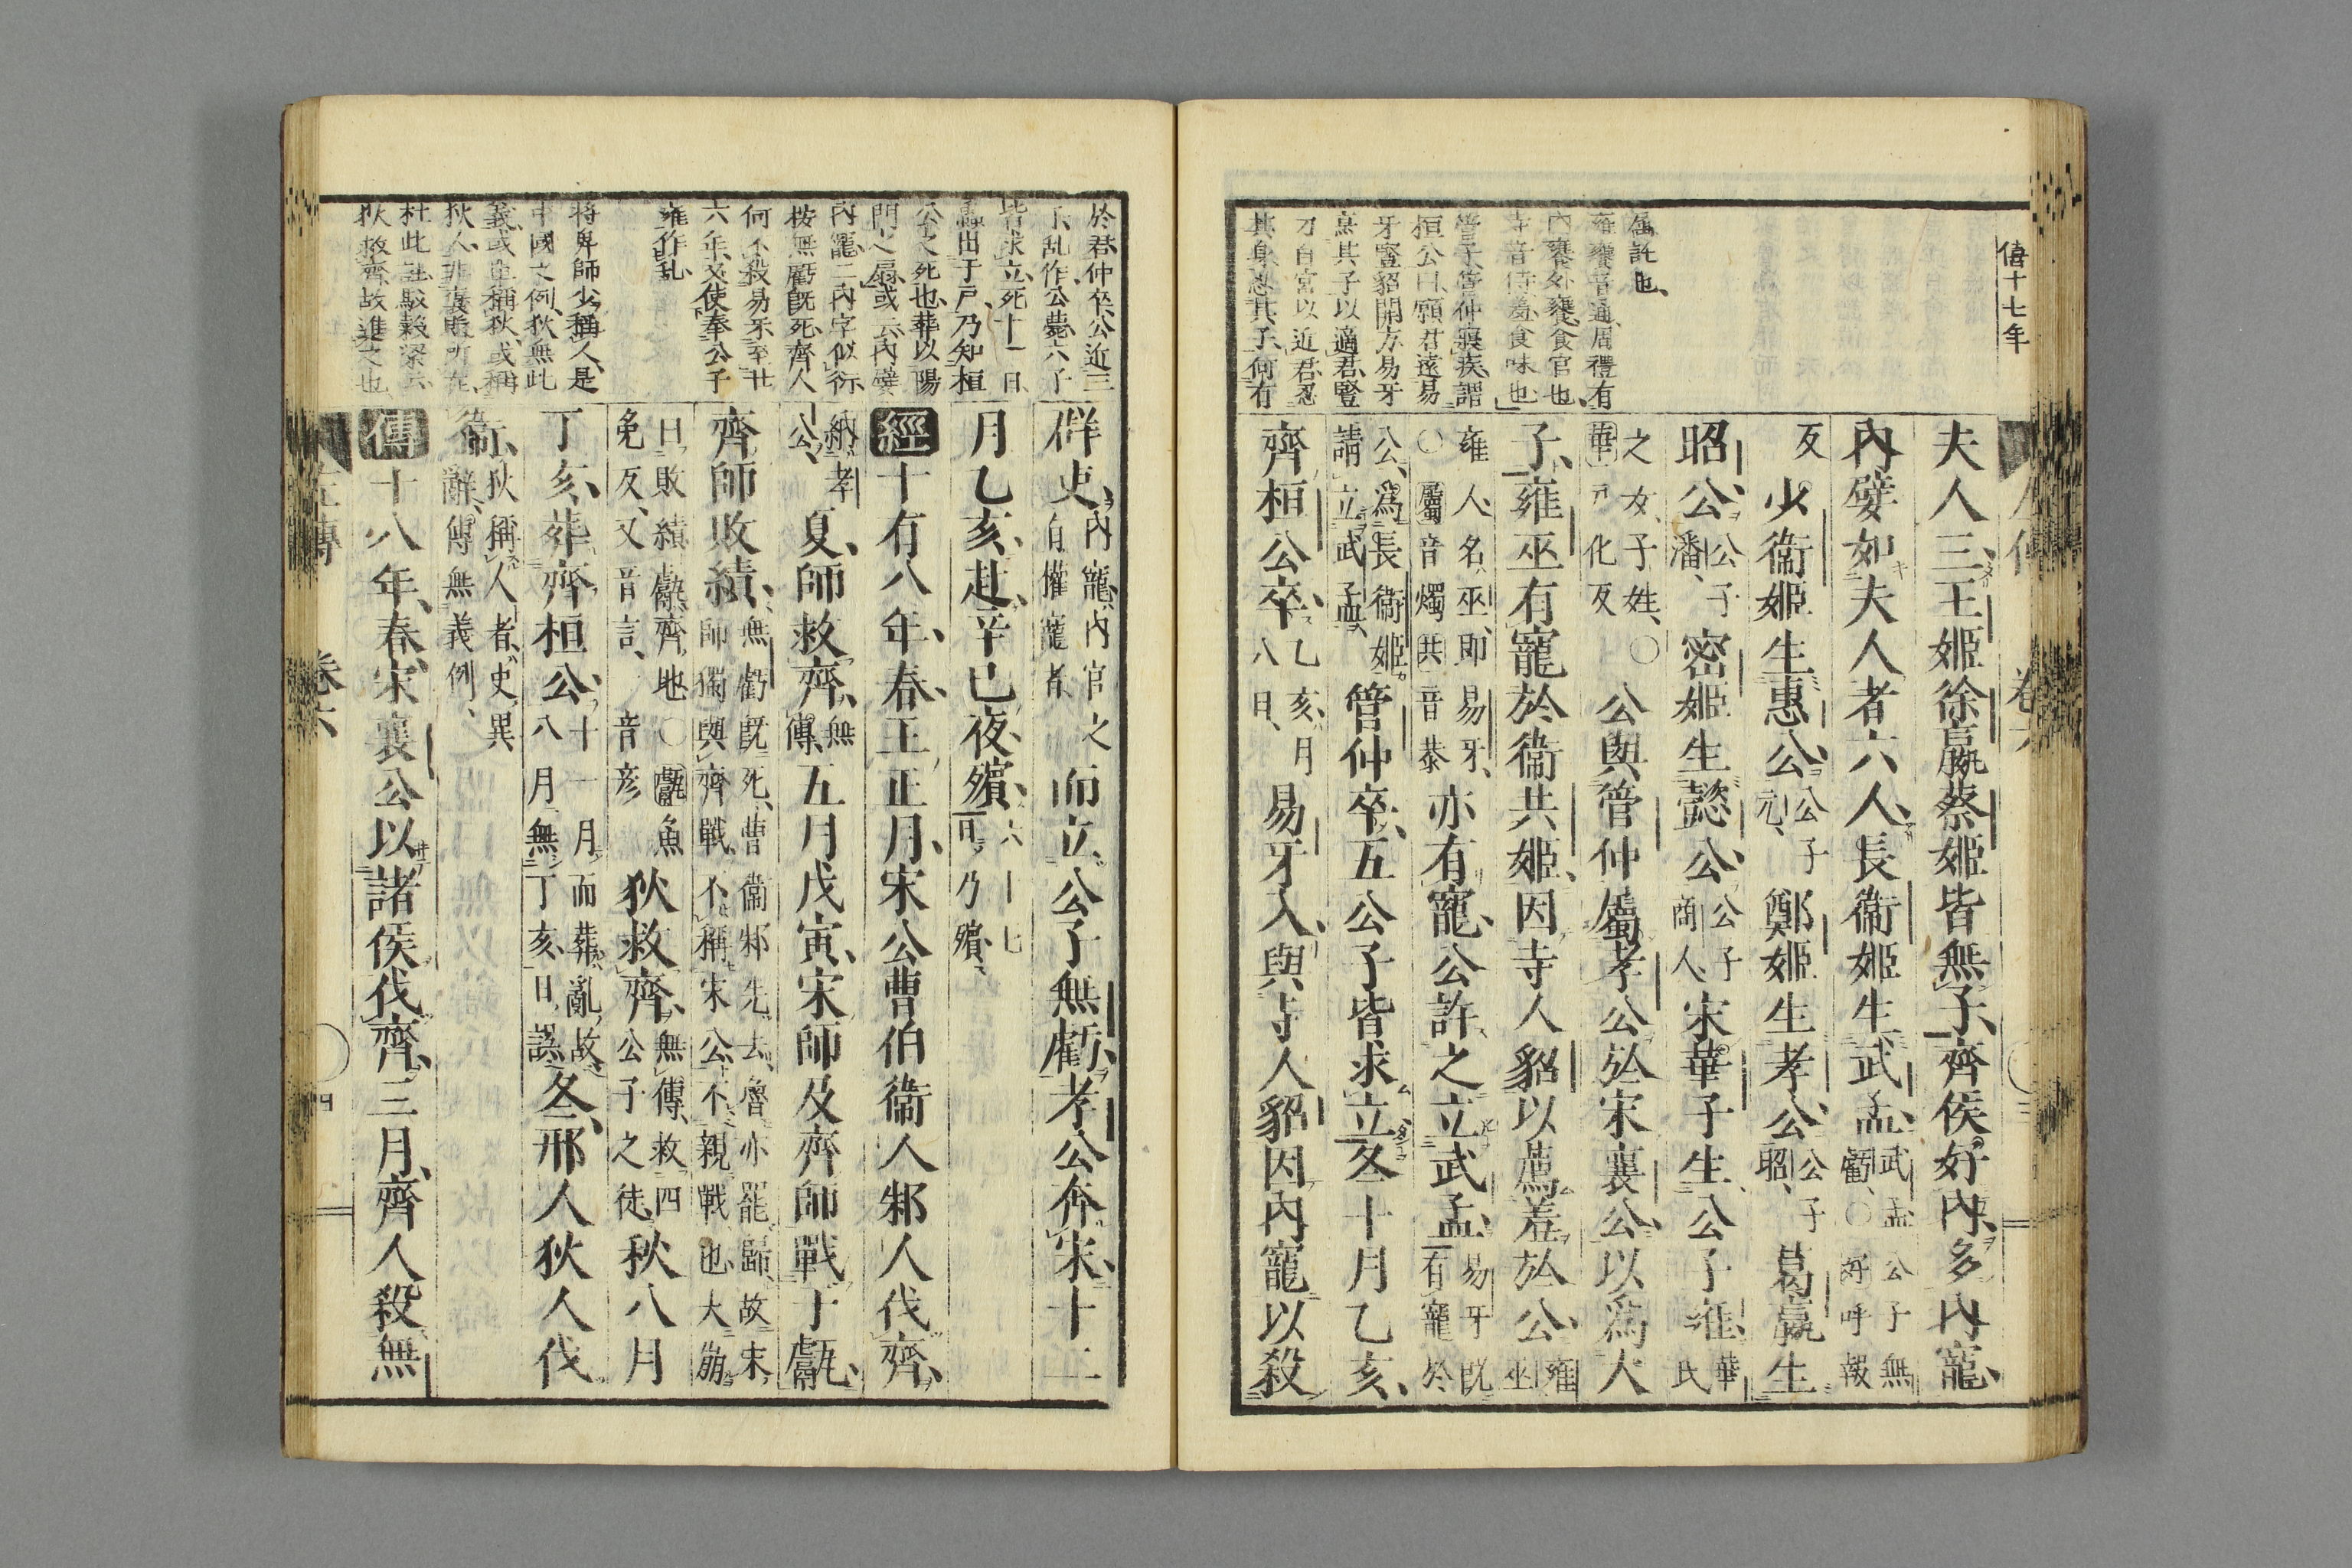 僖十七年
屬託也、
雍饔音通、周禮有
內饔外饔食官也、
寺音侍、羞食味也、
管子、管仲寢疾、謂
桓公曰、願君遠易
牙豎貂開方、易牙
烹其子以適君、豎
刀自宮以近君、忍
其身忍其子、何有
夫人三、王姬徐嬴蔡姬皆無子、齊侯好內、多內寵、
內嬖如夫人者六人、長衞姬生武孟、武孟公子無虧、〇好呼報
反少衞姬生惠公、公子元、鄭姬生孝公、公子昭、葛嬴生
昭公、公子潘、密姬生懿公、公子商人、宋華子生公子雍、華氏
之女、子姓、〇華元化反公與管仲屬孝公於宋襄公、以爲大
子、雍巫有寵於衞共姬、因寺人貂以薦羞於公、雍巫
雍人名巫、即易牙、〇屬音燭共音恭亦有寵、公許之立武孟、易牙既有寵於
公、爲長衞姬請立武孟、管仲卒、五公子皆求立、冬十月乙亥、
齊桓公卒、乙亥、月八日、易牙入、與寺人貂因內寵以殺
於君、仲卒、公近三
子、乱作、公薨、六子
皆求立、死十一日、
蟲出于戶、乃知桓
公之死也、葬以陽
門之扇、或云、內嬖
內寵、二內字似衍、
按無虧既死、齊人
何不殺易牙、至廿
六年、又使奉公子
雍作乱、
將卑師少稱人、是
中國之例、狄無此
義、或由稱狄、或稱
狄人、非褒貶所在、
杜此註駁穀梁云
狄救齊、故進之也
群吏、內寵、內官之有權寵者、而立公子無虧、孝公奔宋、十二
月乙亥、赴、辛巳夜、殯、六十七日、乃殯、
經十有八年、春、王正月、宋公曹伯衞人邾人伐齊、
納孝公、夏、師救齊、無傳、五月戊寅、宋師及齊師戰于甗、
齊師敗績、無虧既死、曹衞邾先去、魯亦罷歸、故宋師獨與齊戰、不稱宋公、不親戰也、大崩
曰敗績、甗齊地、〇甗魚免反、又音言、音彥狄救齊、無傳、救四公子之徒、秋八月
丁亥、葬齊桓公、十一月而葬、亂故、八月無丁亥、日誤、冬、邢人狄人伐
衞、狄稱人者、史異辭、傳無義例、
傳十八年、春、宋襄公以諸侯伐齊、三月、齊人殺無
左傳 卷六